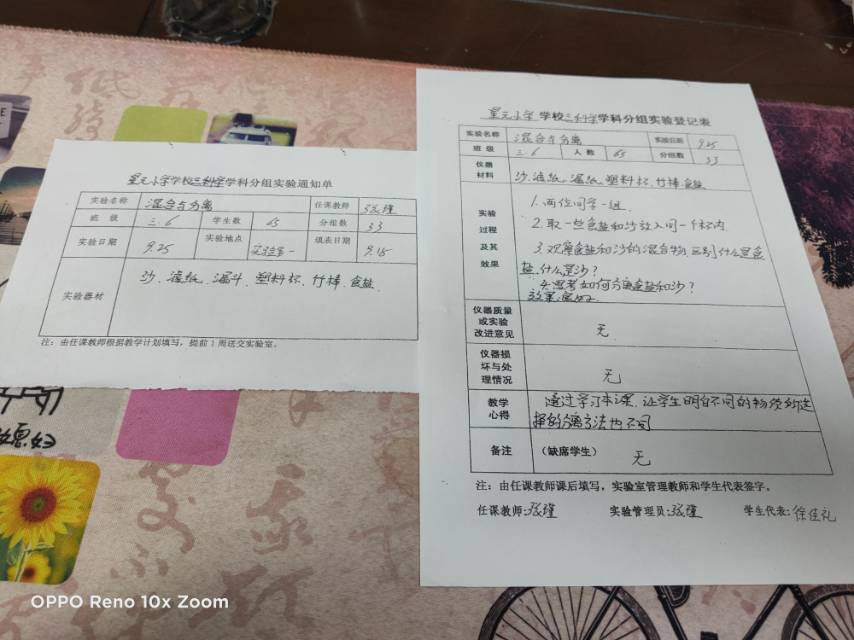 星元小学学校三科学学科分组实验通知单
实验名称 混合与分离 任课教师 张瑾
班 级 三.6 学生数 65 分组数 33
实验日期 9.25 实验地点 实验室一 填表日期 9.15
实验器材 沙、滤纸、漏斗、塑料杯、竹棒、食盐
注:由任课教师根据教学计划填写,提前1周送交实验室。
星元小学 学校三科学学科分组实验登记表
实验名称 混合与分离 实验日期 9.25
班 级 三.6 人 数 65 分组数 33
仪器
材料
沙、滤纸、漏纸、塑料杯、竹棒、食盐
实验
过程
及其
效果
1.两位同学一组.
2.取一些食盐和沙放入同一个杯内
3.观察食盐和沙的混合物,区别什么是食
盐,什么是沙?
4.思考如何分离食盐和沙?
效果:良好
仪器质量
或实验
改进意见
无
仪器损
坏与处
理情况
无
教学
心得
通过学习本课,让学生明白不同的物质所选
择的分离方法也不同
备注 (缺席学生) 无
注:由任课教师课后填写,实验室管理教师和学生代表签字。
任课教师:张瑾 实验管理员:张瑾 学生代表:徐佳礼
低
媳妇
OPPO Reno 10x Zoom